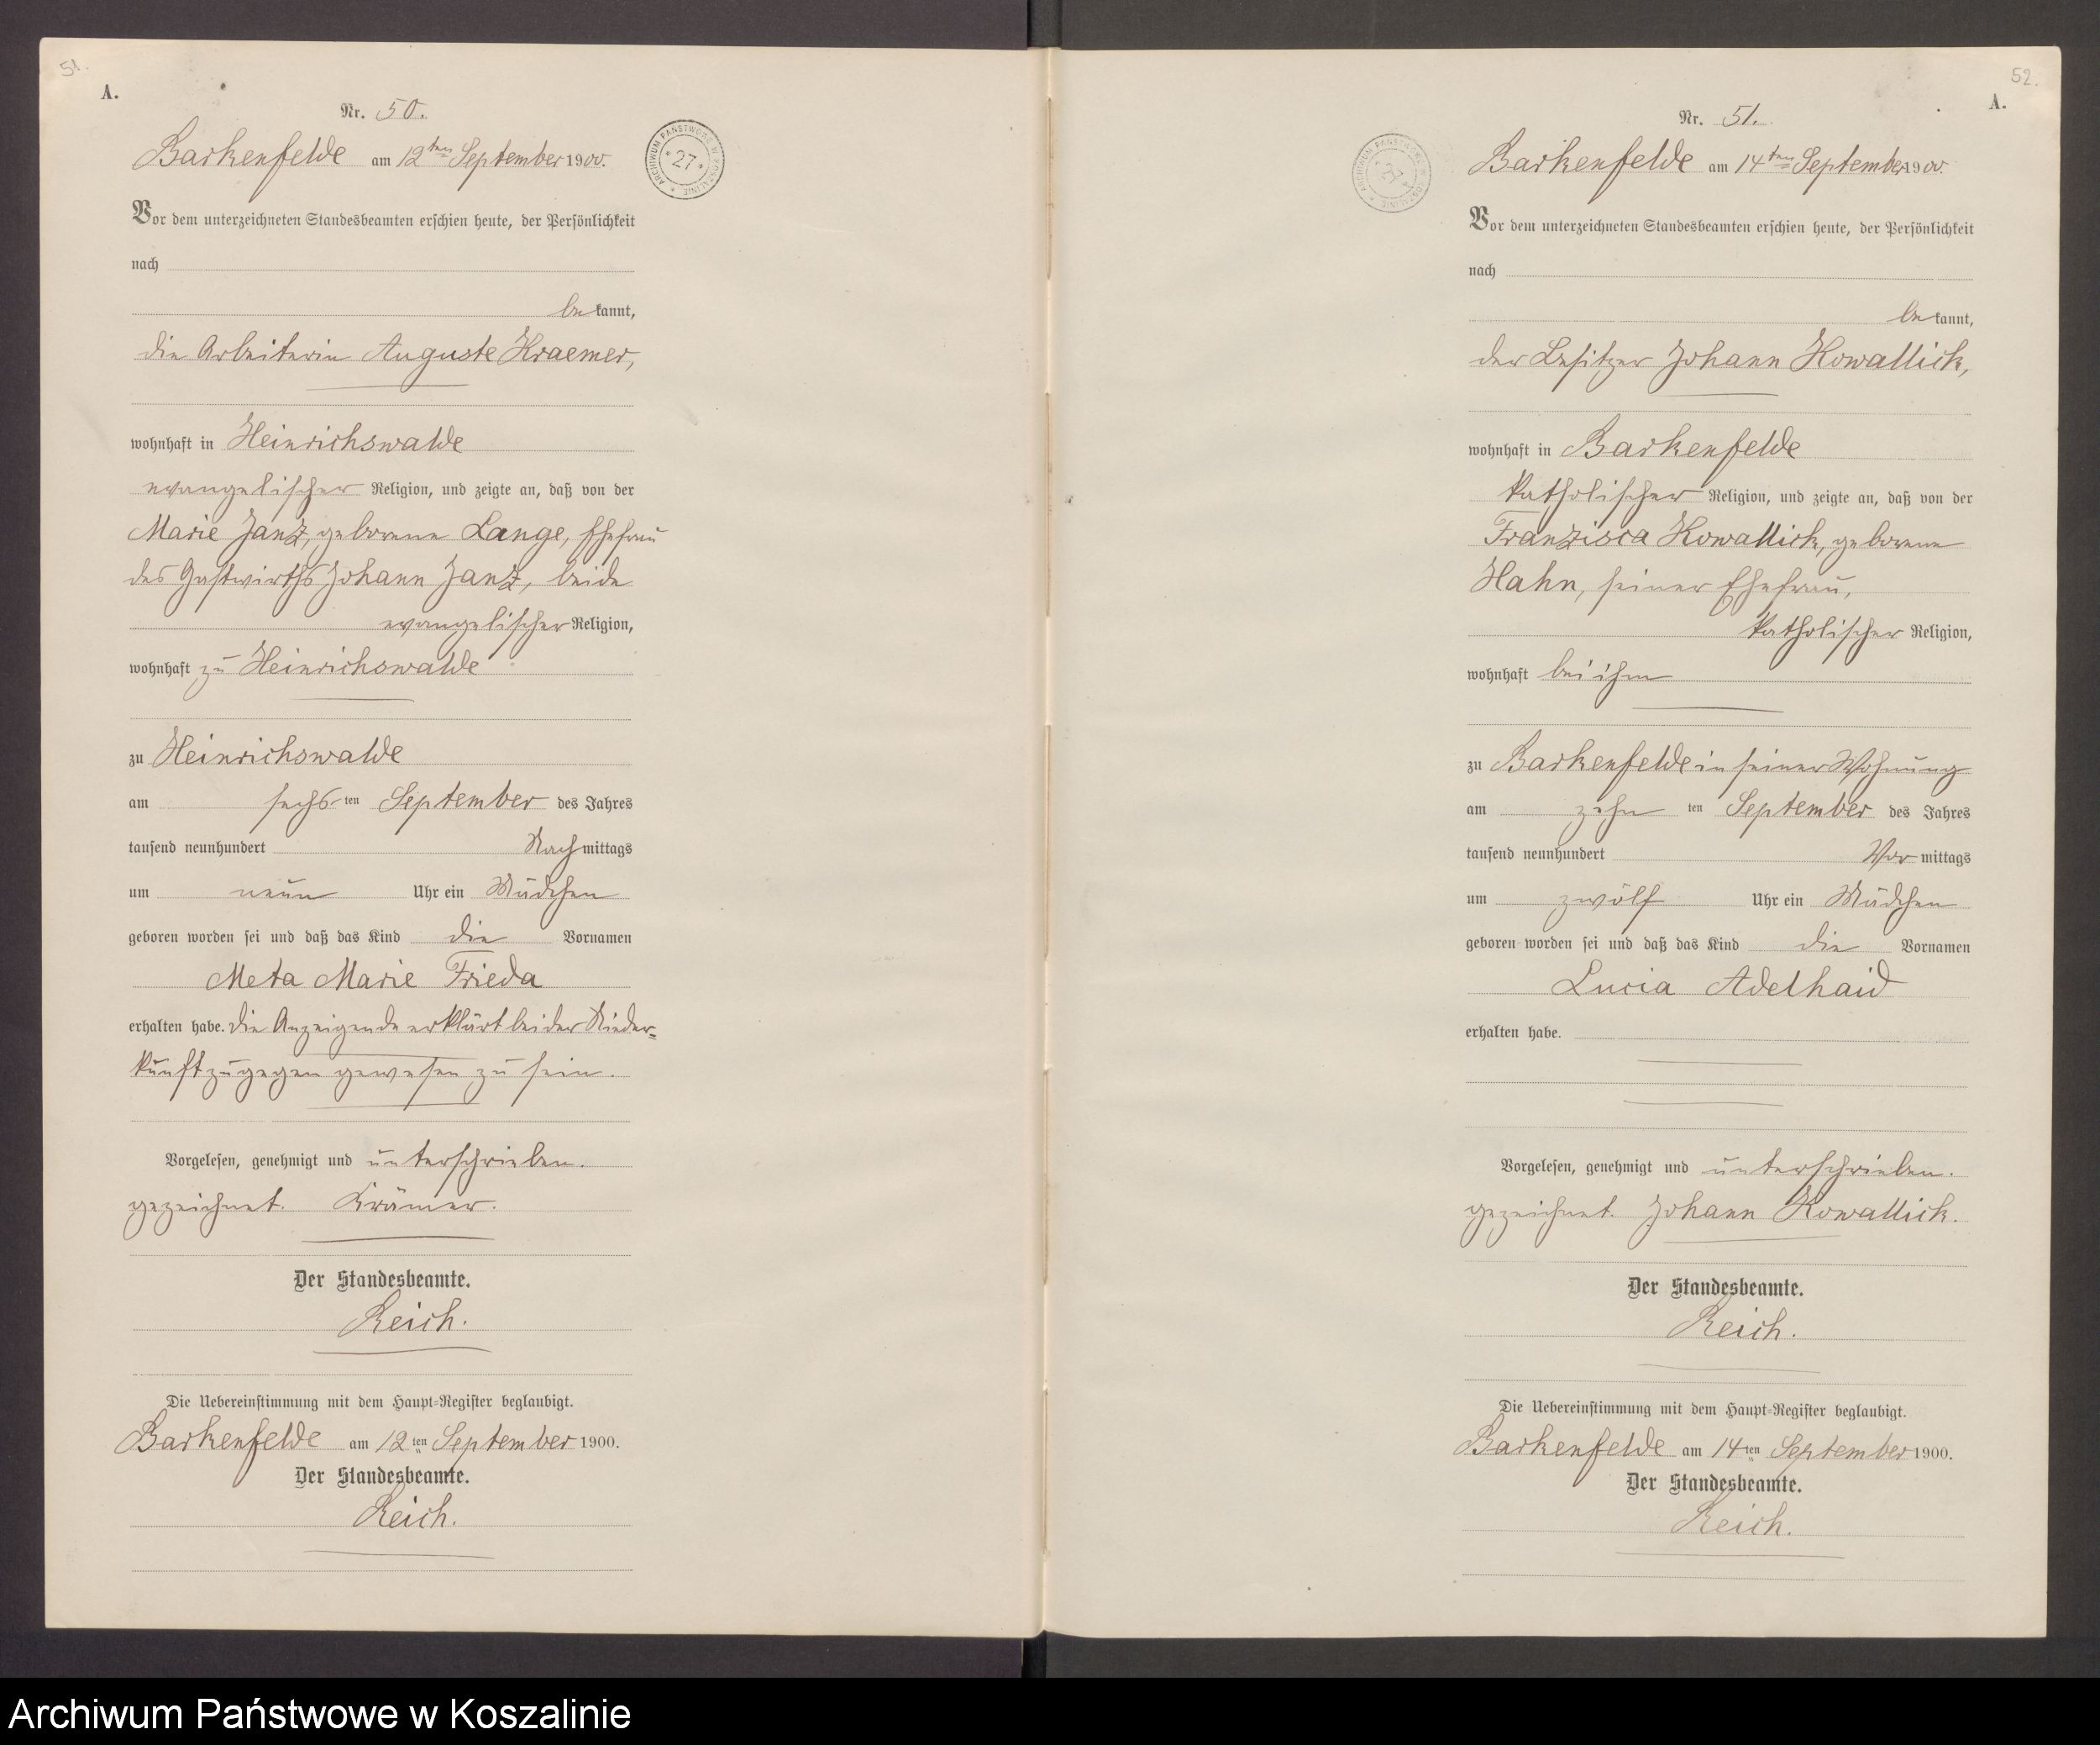 51.
A.
Nr. 50.
Barkenfelde am 12ten September 1900.
ARCHIWUM PAŃSTWOWE W KOSZALINIE * 27 *
Vor dem unterzeichneten Standesbeamten erschien heute, der Persönlichkeit
nach
bekannt,
die Arbeiterin Auguste Kraemer,
wohnhaft in Heinrichswalde
evangelischer Religion, und zeigte an, daß von der
Marie Janz, geborene Lange, Ehefrau
des Gastwirths Johann Janz, beide
evangelischer Religion,
wohnhaft zu Heinrichswalde
zu Heinrichswalde
am sechsten September des Jahres
tausend neunhundert Nachmittags
um neun Uhr ein Mädchen
geboren worden sei und daß das Kind die Vornamen
Meta Marie Frieda
erhalten habe. Die Anzeigende erklärt bei der Nieder=
kunft zugegen gewesen zu sein.
Vorgelesen, genehmigt und unterschrieben.
gezeichnet. Krämer.
Der Standesbeamte.
Reich.
Die Uebereinstimmung mit dem Haupt-Register beglaubigt.
Barkenfelde am 12ten September 1900.
Der Standesbeamte.
Reich.
52.
A.
Nr. 51.
Barkenfelde am 14ten September 1900.
ARCHIWUM PAŃSTWOWE W KOSZALINIE * 27 *
Vor dem unterzeichneten Standesbeamten erschien heute, der Persönlichkeit
nach
bekannt,
der Besitzer Johann Kowallick,
wohnhaft in Barkenfelde
katholischer Religion, und zeigte an, daß von der
Franzisca Kowallick, geborene
Hahn, seiner Ehefrau,
katholischer Religion,
wohnhaft bei ihm
zu Barkenfelde in seiner Wohnung
am zehnten September des Jahres
tausend neunhundert Vormittags
um zwölf Uhr ein Mädchen
geboren worden sei und daß das Kind die Vornamen
Lucia Adelhaid
erhalten habe.
Vorgelesen, genehmigt und unterschrieben.
gezeichnet. Johann Kowallick.
Der Standesbeamte.
Reich.
Die Uebereinstimmung mit dem Haupt-Register beglaubigt.
Barkenfelde am 14ten September 1900.
Der Standesbeamte.
Reich.
Archiwum Państwowe w Koszalinie